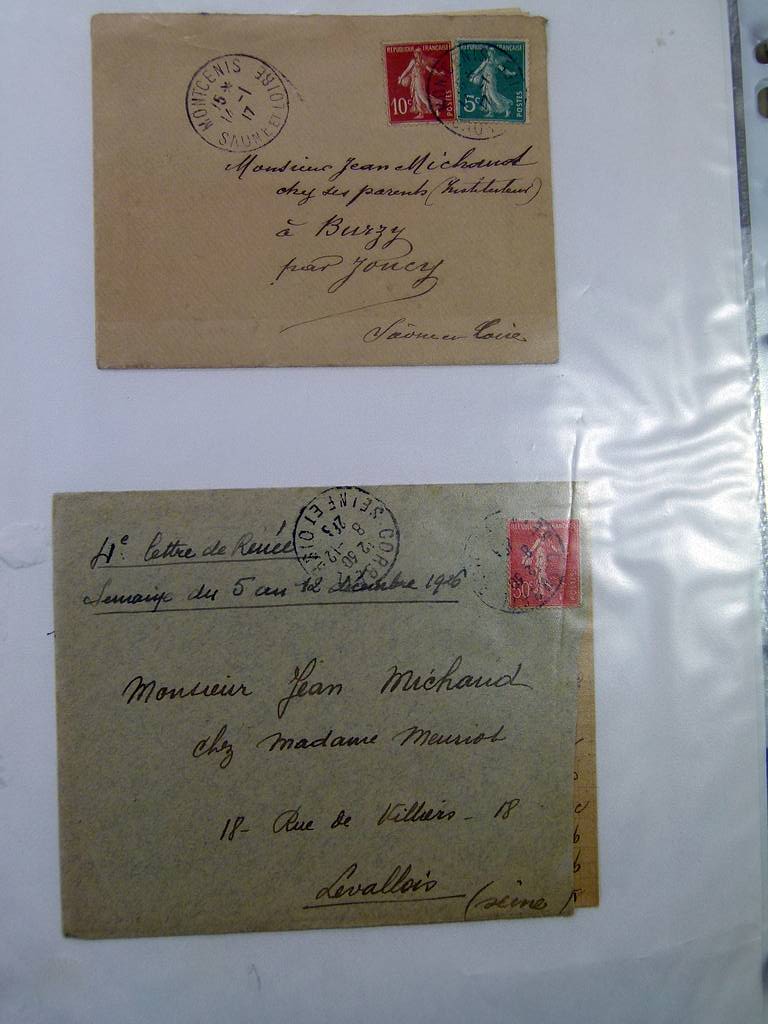 MONTCENIS
15 * 1-1 17
SAÔNE ET LOIRE
REPUBLIQUE FRANÇAISE
10c POSTES
REPUBLIQUE FRANÇAISE
5c POSTES
Monsieur Jean Michaud
chez ses parents (Instituteur)
à Burzy
par Joncy
Saône et Loire
SEINE ET OISE
4e lettre de Renée
Semaine du 5 au 12 décembre 1926
50c
Monsieur Jean Michaud
chez Madame Meuriot
18 - Rue de Villiers - 18
Levallois
(seine)